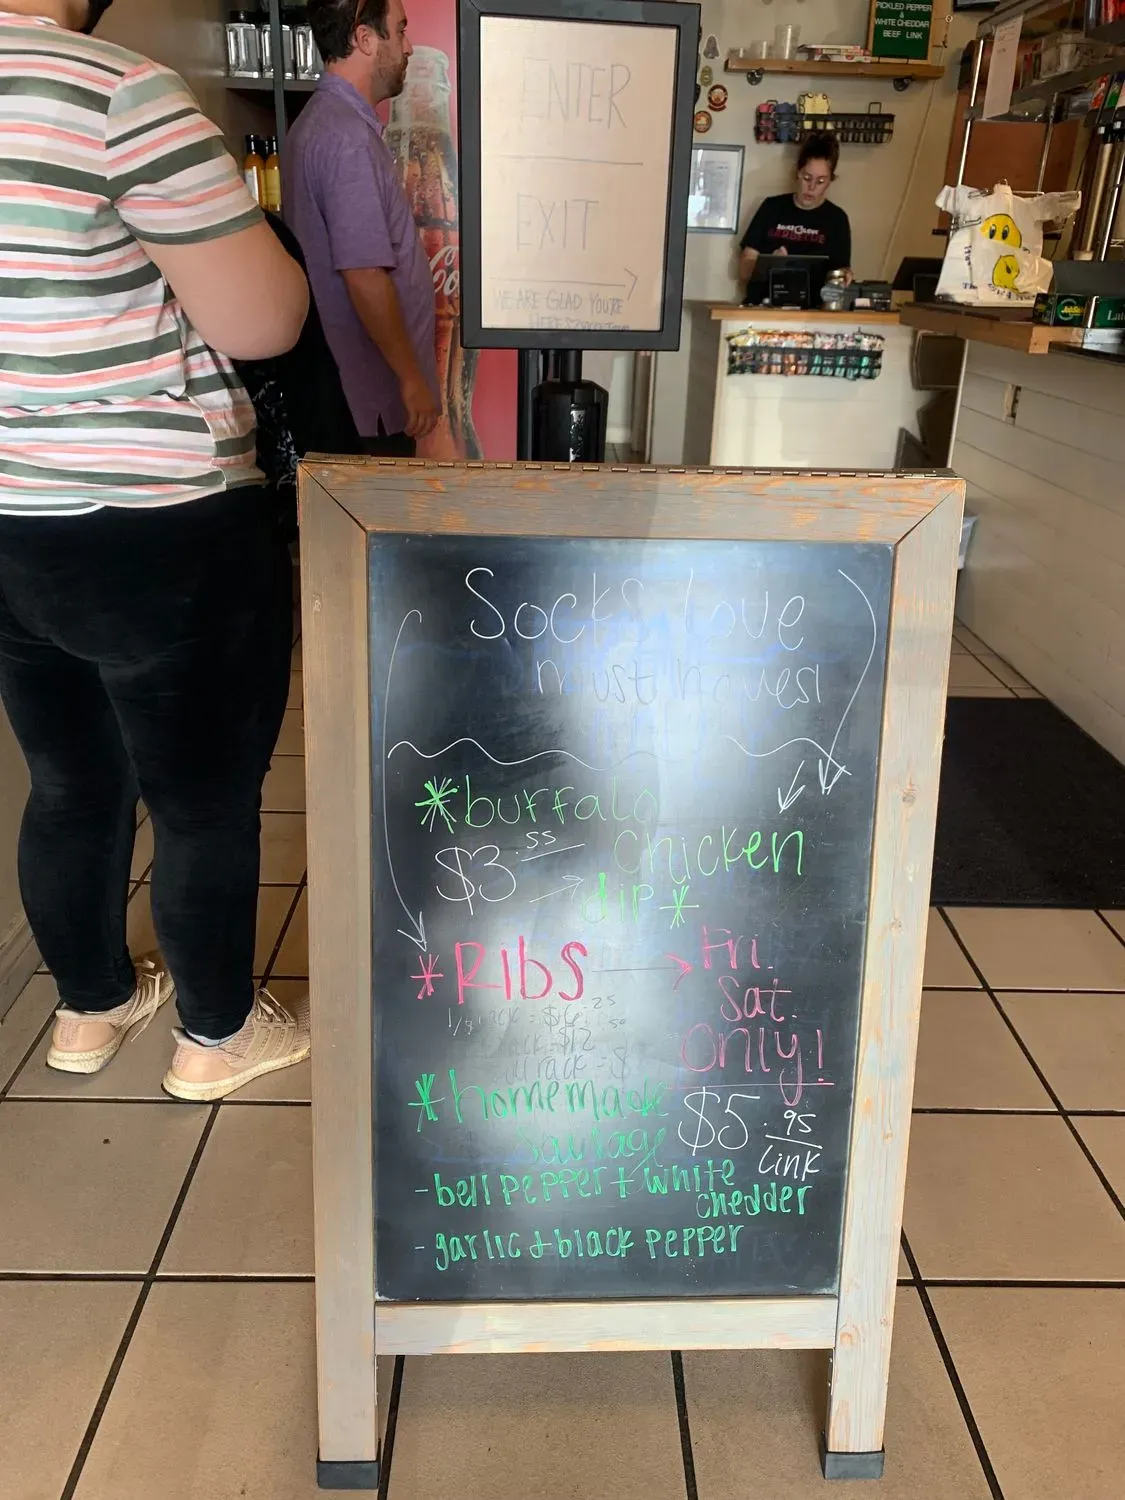 PICKLED PEPPER
&
WHITE CHEDDAR
BEEF LINK
ENTER
EXIT
WE ARE GLAD YOU'RE
HERE
Socks Love
must haves!
*buffalo
chicken
dip*
$3.55
*RIbS
Fri.
Sat.
Only!
*homemade
sausage
$5.95
Link
- bell pepper + white
chedder
- garlic + black pepper